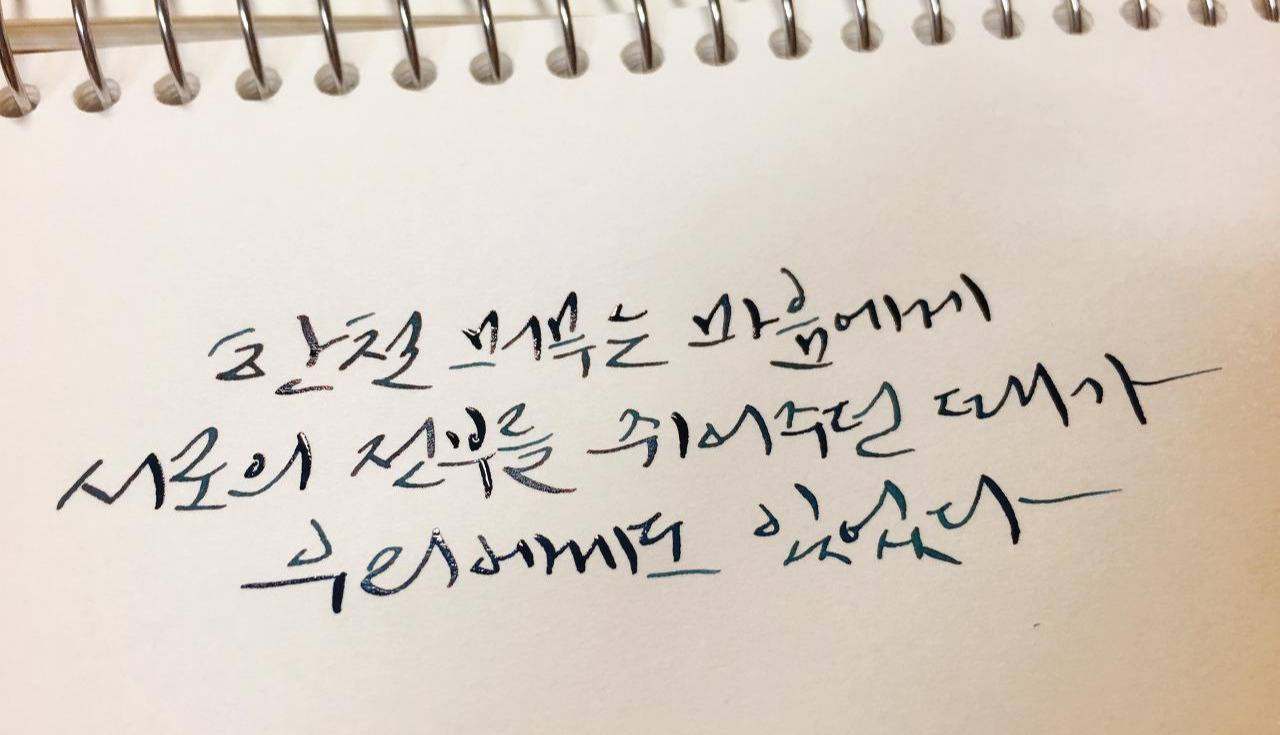 한철 머무는 마음에게
서로의 전부를 쥐어주던 때가
우리에게도 있었다